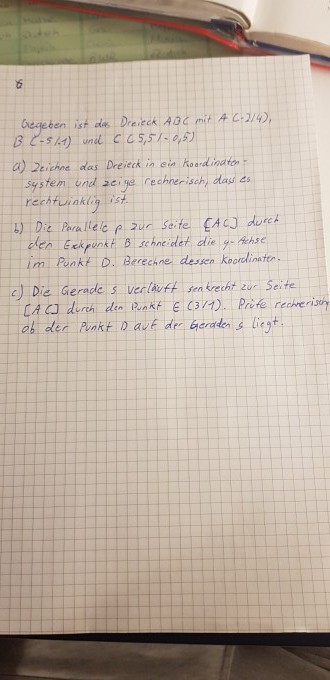 6
Gegeben ist das Dreieck ABC mit A (-2/4),
B (-5/1) und C (5,5/-0,5)
a) Zeichne das Dreieck in ein Koordinaten-
system und zeige rechnerisch, dass es
rechtwinklig ist.
b) Die Parallele p zur Seite [AC] durch
den Eckpunkt B schneidet die y-Achse
im Punkt D. Berechne dessen Koordinaten.
c) Die Gerade s verläuft senkrecht zur Seite
[AC] durch den Punkt E (3/1). Prüfe rechnerisch,
ob der Punkt D auf der Geraden s liegt.